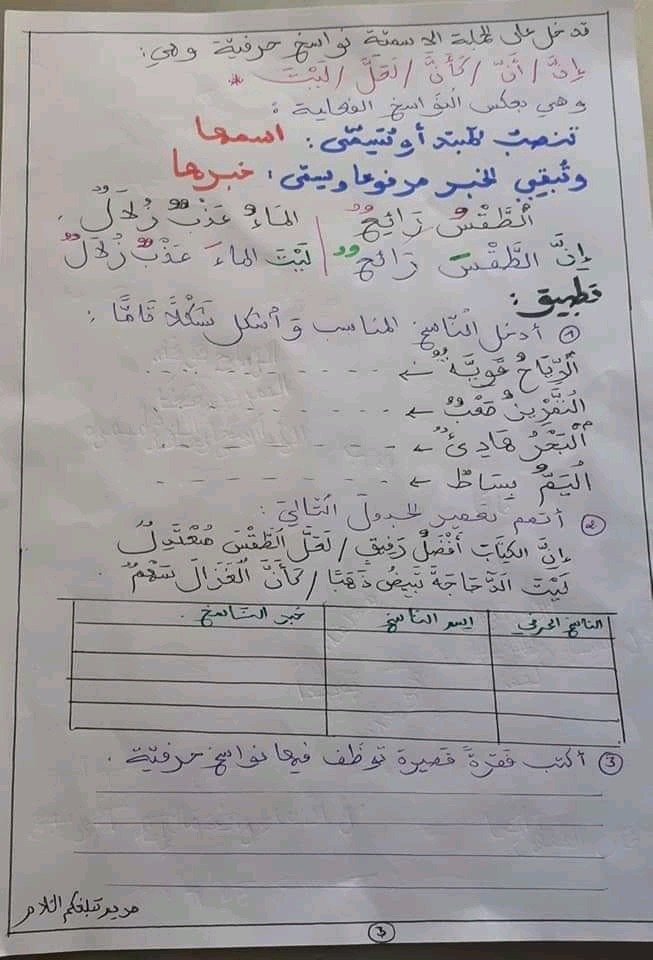 قد تدخل على الجملة الاسميّة نواسخ حرفيّة وهي:
إِنَّ / أَنَّ / كَأَنَّ / لَعَلَّ / لَيْتَ *
وهي بعكس النّواسخ الفعلية:
تنصبُ المبتدأ وتُسمّى: اسمها
وتُبقِي الخبر مرفوعا ويسمّى: خبرها
الطَّقْسُ رَائِعٌ | المَاءُ عَذْبٌ زُلَالٌ.
إِنَّ الطَّقْسَ رَائِعٌ | لَيْتَ الماءَ عَذْبٌ زُلَالٌ
تطبيق:
1 أدخل النّاسخ المناسب وَأشكل شَكْلًا تَامًّا:
الرِّيَاحُ قَوِيَّةٌ ← - - - - - - - -
التَّمْرِينُ صَعْبٌ ← - - - - - - - -
الْبَحْرُ هَادِئٌ ← - - - - - - - -
اليَمُّ بِسَاطٌ ← - - - - - - - -
2 أتمم تعمير الجدول التّالي:
إِنَّ الكِتَابَ أَفْضَلُ رَفِيقٍ / لَعَلَّ الطَّقْسَ مُعْتَدِلٌ
لَيْتَ الدَّجَاجَةَ تَبِيضُ ذَهَبًا / كَأَنَّ الْغَزَالَ سَهْمٌ
الناسخ الحرفي | اسم الناسخ | خبر النّاسخ
3 أكتب فقرةً قصيرة توظف فيها نواسخ حرفيّة.
3